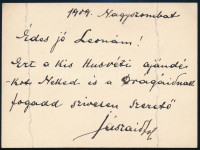 1909. Nagyszombat
Édes jó Leonám!
Ezt a kis Husvéti ajándé-
kot Neked és a Drágáidnak
fogadd szivesen szerető
Jászai